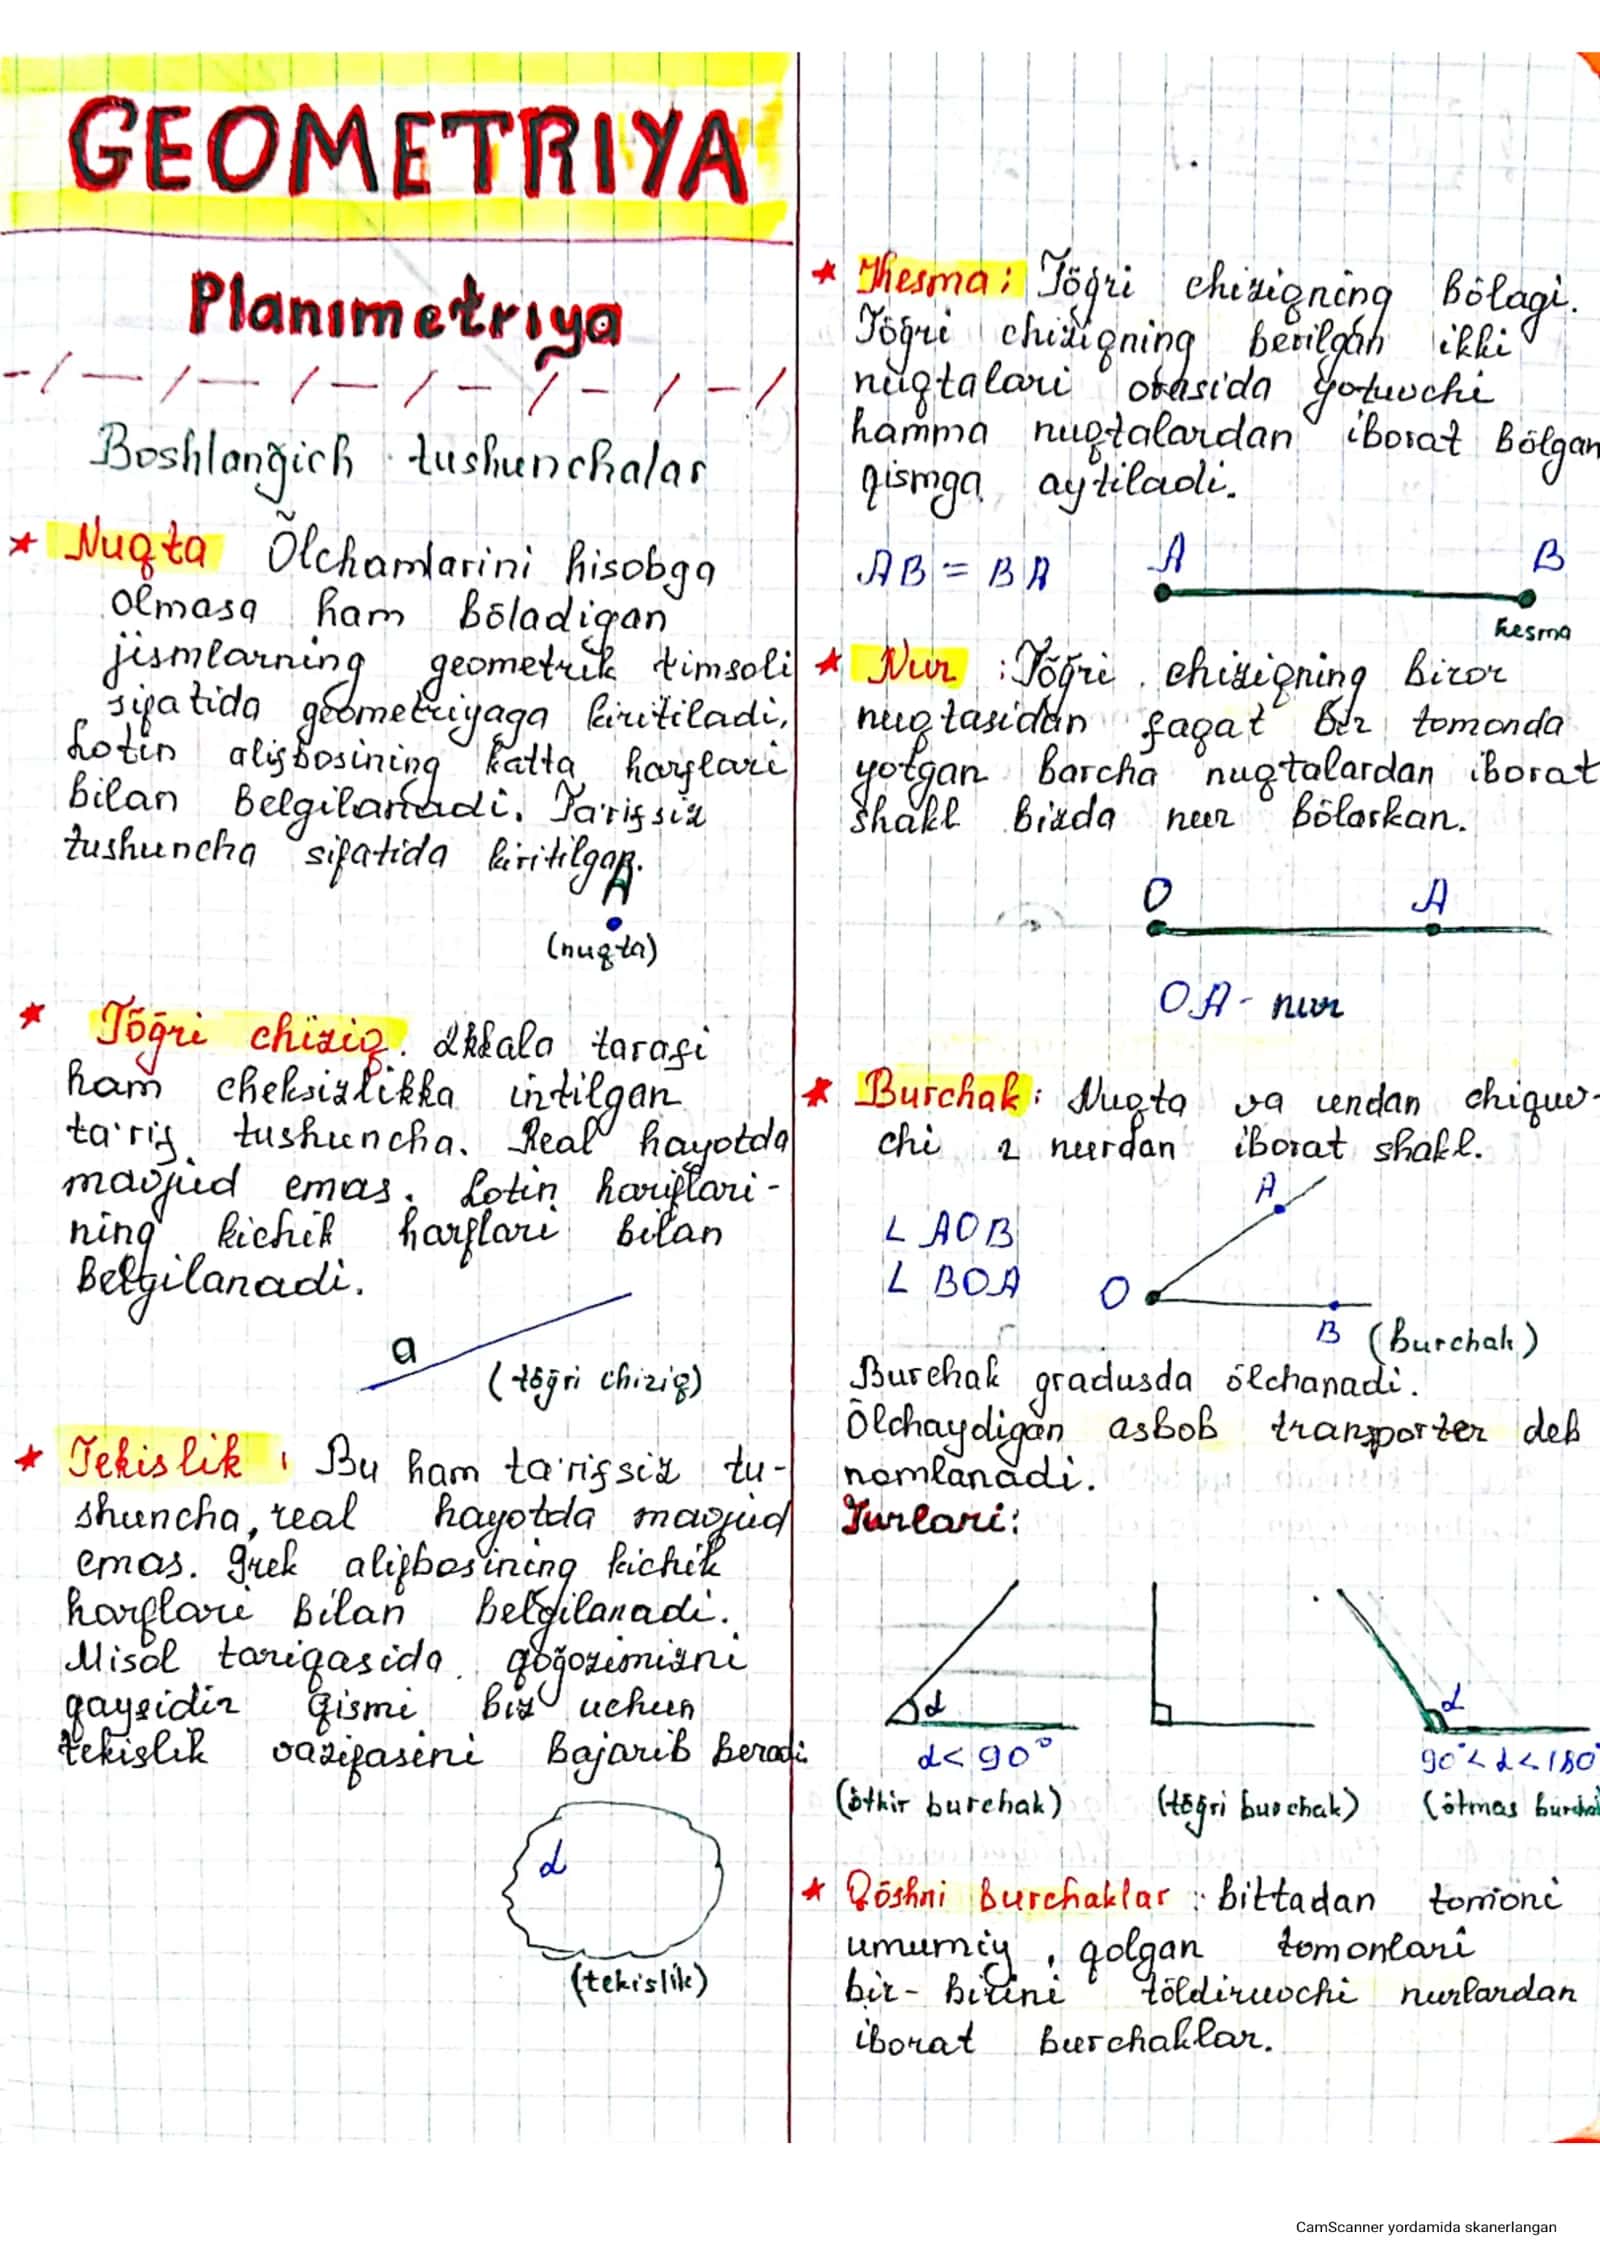 GEOMETRIYA
Planimetriya
Boshlanğich tushunchalar
* Nuqta Õlchamlarini hisobga
olmasa ham bõladigan
jismlarning geometrik timsoli
sifatida geometriyaga kiritiladi,
Lotin alifbosining katta harflari
bilan belgilanadi. Ta'rifsiz
tushuncha sifatida kiritilgan.
A
(nuqta)
* Tõğri chiziq. Ikkala tarafi
ham cheksizlikka intilgan
ta'rif tushuncha. Real hayotda
mavjud emas. Lotin hariflari-
ning kichik harflari bilan
belgilanadi.
a
(tõğri chiziq)
* Tekislik : Bu ham ta'rifsiz tu-
shuncha, real hayotda mavjud
emas. Grek alifbosining kichik
harflari bilan belgilanadi.
Misol tariqasida qoğozimizni
qaysidir qismi biz uchun
tekislik vazifasini bajarib beradi.
α
(tekislik)
* Kesma: Tõğri chiziqning bõlagi.
Tõğri chiziqning berilgan ikki
nuqtalari orasida yotuvchi
hamma nuqtalardan iborat bõlgan
qismga aytiladi.
AB = BA
A B
kesma
* Nur : Tõğri chiziqning biror
nuqtasidan faqat bir tomonda
yotgan barcha nuqtalardan iborat
shakl bizda nur bõlarkan.
O A
OA - nur
* Burchak: Nuqta va undan chiquv-
chi 2 nurdan iborat shakl.
A
∠ AOB
∠ BOA
O
B
(burchak)
Burchak gradusda õlchanadi.
Õlchaydigan asbob transporter deb
nomlanadi.
Turlari:
α
α
α < 90°
90° < α < 180°
(õtkir burchak)
(tõğri burchak)
(õtmas burchak
* Qõshni burchaklar : bittadan tomoni
umumiy, qolgan tomonlari
bir-birini tõldiruvchi nurlardan
iborat burchaklar.
CamScanner yordamida skanerlangan